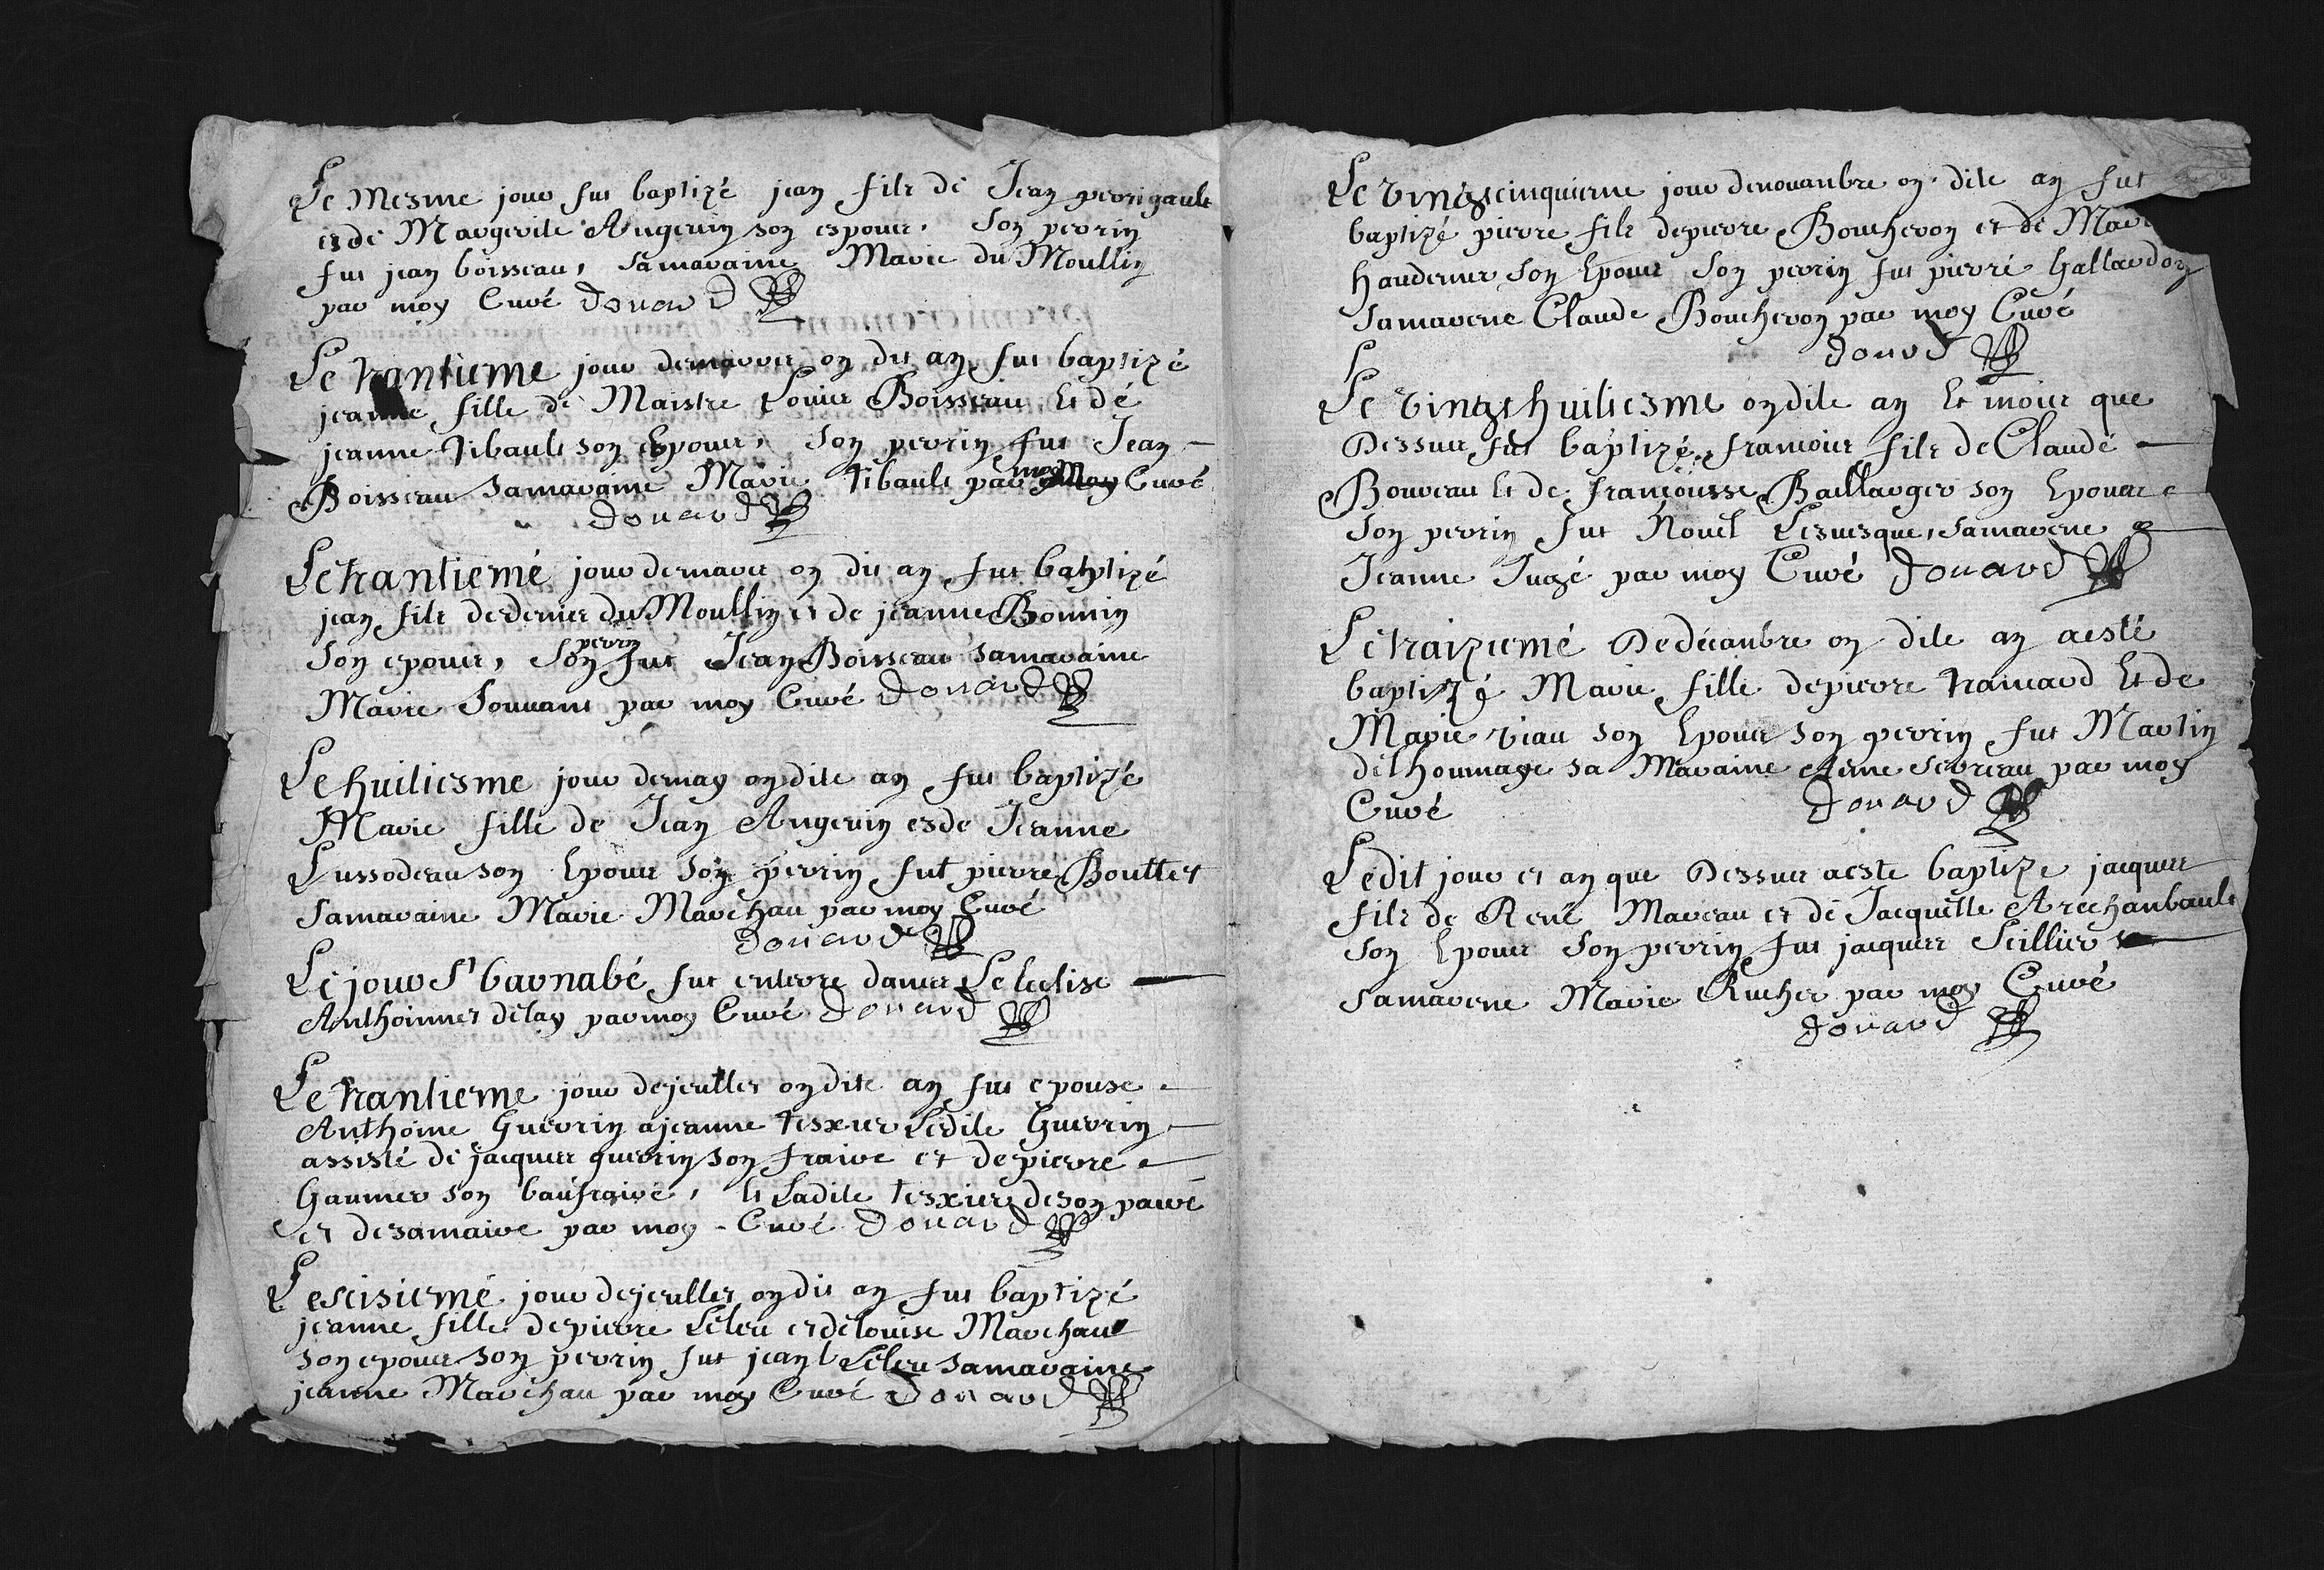 Le Mesme jour fut baptizé jean fils de Jean perrigault
et de Margerite Angevin son espouse, Son perrin
fut jean boisseau, samaraine Marie du Moullin
par moy Curé Douard
Le trantieme jour demarts on dit an fut baptizé
jeanne fille de Maistre Louis Boisseau Et dé
jeanne tibault son Epouse, Son perrin fut Jean
Boisseau samaraine Marie tibault par moy Curé
Douard
Le trantiemé jour demars on dit an fut batptizé
jean fils dedenis du Moullin et de jeanne Bonnin
son epouse, son perrin fut Jean Boisseau samaraine
Marie Souvant par moy Curé Douard
Le huitiesme jour demay on dite an fut baptizé
Marie fille de Jean Angevin et de Jeanne
Lussodeau son Epouse son perrin fut pierre Bouttet
samaraine Marie Marchau par moy Curé
Douard
Le jour St barnabé fut enterre dans Le leclise
Anthoinnet délay par moy Curé Douard
Le trantieme jour dejeullet on dite an fut epouse
Anthoine Guerrin a jeanne tesxier Ledite Guerrin
assisté de jacques guerrin son fraire et depierre
Gaumer son baufraire, Et Ladite tesxier de son paire
et desamaire par moy Curé Douard
Le scisiemé jour dejeullet on dit an fut baptizé
jeanne fille depierre Léleu et delouise Marchau
son epouse son perrin fut jean Léleu samaraine
jeanne Marchau par moy Curé Douard
Le vingtcinquieme jour denouanbre on dite an fut
baptizé pierre fils depierre Boucheron et de Mari
handenis son Epouse son perrin fut pierré Gallardon
samarene Claude Boucheron par moy Curé
Douard
Le vingthuitiesme on dite an Et mois que
Dessus fut baptizé francois fils de Claude
Boureau Et de francousse Baillarger son Epouse
son perrin fut Nouel Levesque, samarene
Jeanne Jugé par moy Curé Douard
Le traiziemé De décanbre on dite an aesté
baptizé Marie fille depierre trainard Et de
Marie viau son Epouse son perrin fut Martin
délhoumage sa Maraine Anne sebreau par moy
Curé Douard
Ledit jour et an que Dessus aeste baptize jacques
fils de René Mareau et de Jacquette Arechanbault
son Epouse son perrin fut jacques Seillier
samarene Marie Rucher par moy Curé
Douard